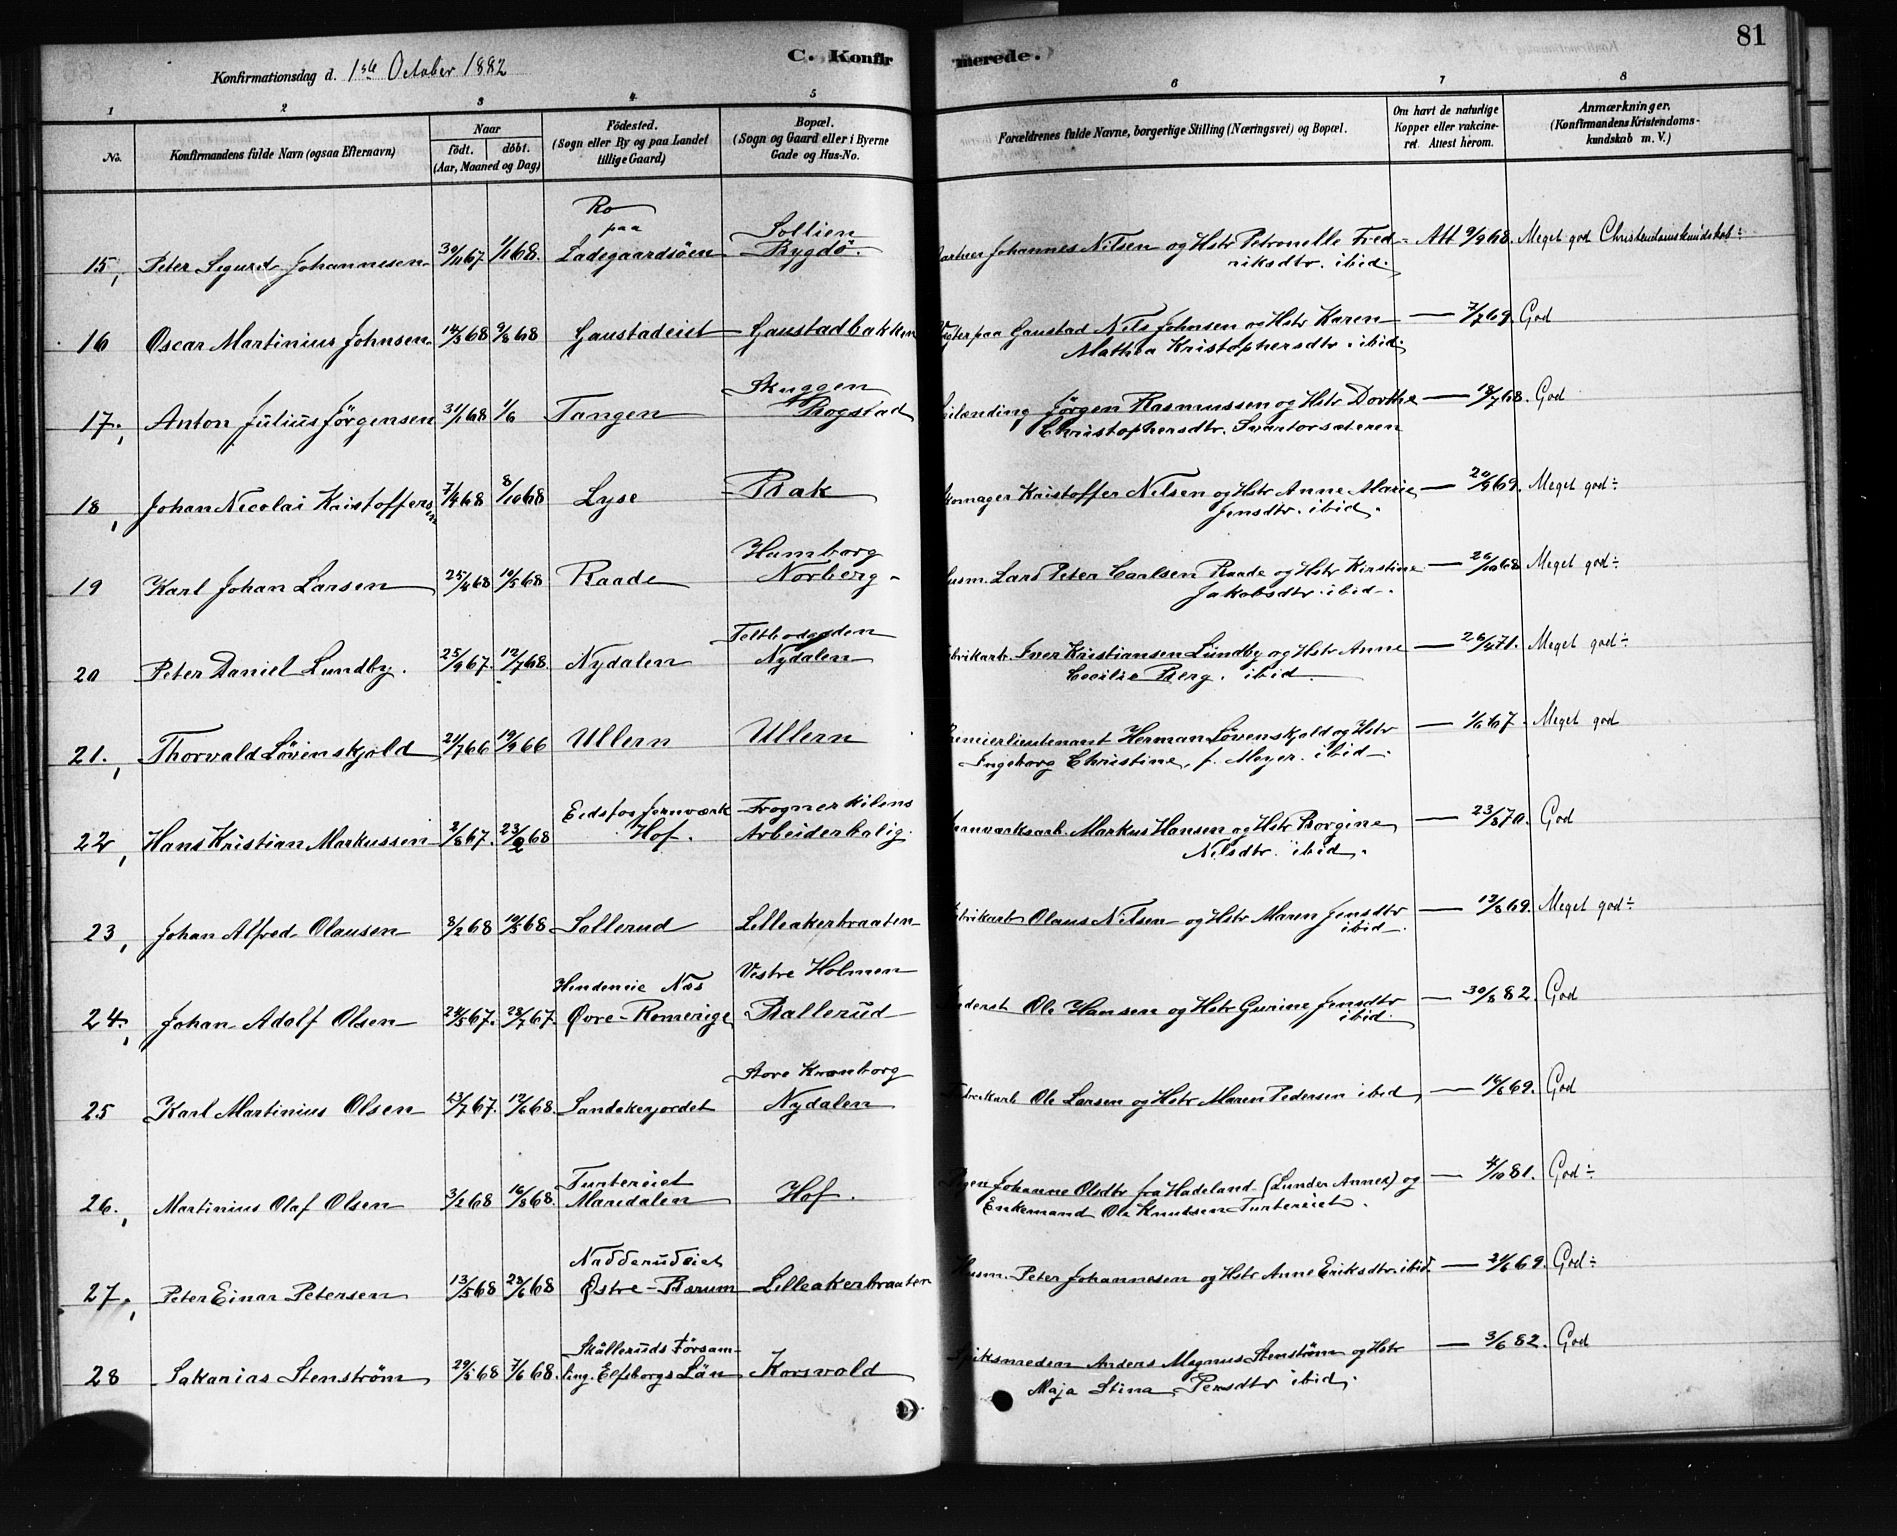 81
C. Konfirmerede.
Konfirmationsdag d. 1ste October 1882
1 2 3 4 5 6 7 8
No.
Konfirmandens fulde Navn (ogsaa Efternavn)
Naar
födt. döbt.
(Aar, Maaned og Dag)
Födested.
(Sogn eller By og paa Landet
tillige Gaard)
Bopæl.
(Sogn og Gaard eller i Byerne
Gade og Hus-No.
Forældrenes fulde Navne, borgerlige Stilling (Næringsvei) og Bopæl.
Om havt de naturlige
Kopper eller vakcine-
ret. Attest herom.
Anmærkninger.
(Konfirmandens Kristendoms-
kundskab m. V.)
Ro
paa Sollien
15, Peter Sigurd Johannesen 30/11 67 1/1 68. Ladegaardsöen Bygdö. Gartner Johannes Nilsen og Hstr Petronelle Fred- Att 9/9 68. Meget god Christendomskundskab÷
riksdtr. ibid.
16 Oscar Martinius Johnsen 14/3 68 9/8 68 Gaustadeiet Gaustadbakken Vogter paa Gaustad Nils Johnsen og Hstr Karen — 7/7 69. God
Mathea Kristophersdtr. ibid.
Skuggen
17., Anton Julius Jörgensen 31/1 68 1/6 Tangen Rogstad Jörgen Rasmussen og Hstr Dorthe — 18/7 68. God
Christophersdtr. Svartorsæteren
18, Johan Nicolai Kristoffersen 7/4 68 8/10 68 Lyse Bak Skomager Kristoffer Nilsen og Hstr Anne Marie — 20/9 69. Meget god÷
Jensdtr. ibid.
Hamborg
19 Karl Johan Larsen 25/4 68 10/5 68 Raade Norberg. Husm. Lars Peter Carlsen Raade og Hstr Kirstine — 26/10 68 Meget god÷
Jakobsdtr. ibid.
Telthusgden
20 Peter Daniel Lundby. 25/9 67. 12/7 68. Nydalen Nydalen Fabrikarb. Iver Kristiansen Lundby og Hstr Anne — 26/4 71. Meget god÷
Cecilie Berg. ibid
21., Thorvald Lövenskjold 21/7 66 19/9 66 Ullern Ullern Premierlieutenant Herman Lövenskjold og Hstr — 1/6 67. Meget god
Ingeborg Christine, f. Meyer. ibid.
Eidsfos Jernværk Frognerkilens
22, Hans Kristian Markussen 2/8 67. 23/2 68 Hof. Arbeiderbolig. Jernværksarb. Markus Hansen og Hstr Borgine — 23/8 70. God
Nilsdtr. ibid.
23, Johan Alfred Olausen 8/2 68 10/5 68 Sollerud Lilleakerbraaten Fabrikarb Olaus Nilsen og Hstr Maren Jensdtr — 13/8 69. Meget god÷
ibid.
Næs Vestre Holmen
24., Johan Adolf Olsen 24/5 67. 28/7 67. Övre-Romerige Ballerud Inderst Ole Hansen og Hstr Gurine Jensdtr — 30/8 82. God
ibid.
Store Kronborg
25 Karl Martinius Olsen 23/7 67. 12/6 68. Sandakerjordet Nydalen Fabrikarb Ole Larsen og Hstr Maren Pedersen ibid — 16/6 69. God
Turtereiet
26., Martinius Olaf Olsen 3/2 68 16/8 68. Maridalen Hof. Pigen Johanne Olsdtr fra Hadeland (Lunder Annex) og — 4/10 81. God÷
Enkemand Ole Knudsen Turtereiet.
Nadderudeiet
27., Peter Einar Petersen 13/5 68 28/6 68 Östre-Bærum Lilleakerbraaten Husm. Peter Johannesen og Hstr Anne Eriksdtr. ibid. — 21/6 69. God÷
Skålleruds Församl-
28 Sakarias Stenström 29/5 68 7/6 68. ling. Elfsborgs Län Korsvold Spiksmeden Anders Magnus Stenström og Hstr — 3/6 82. God
Maja Stina Persdtr ibid.